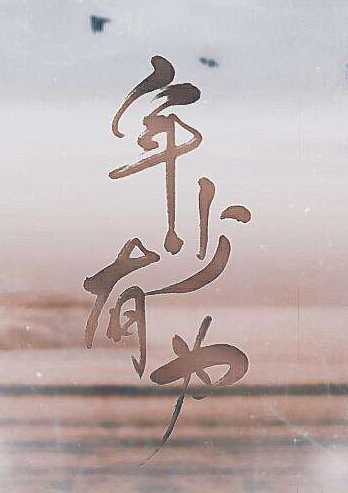 年少有为